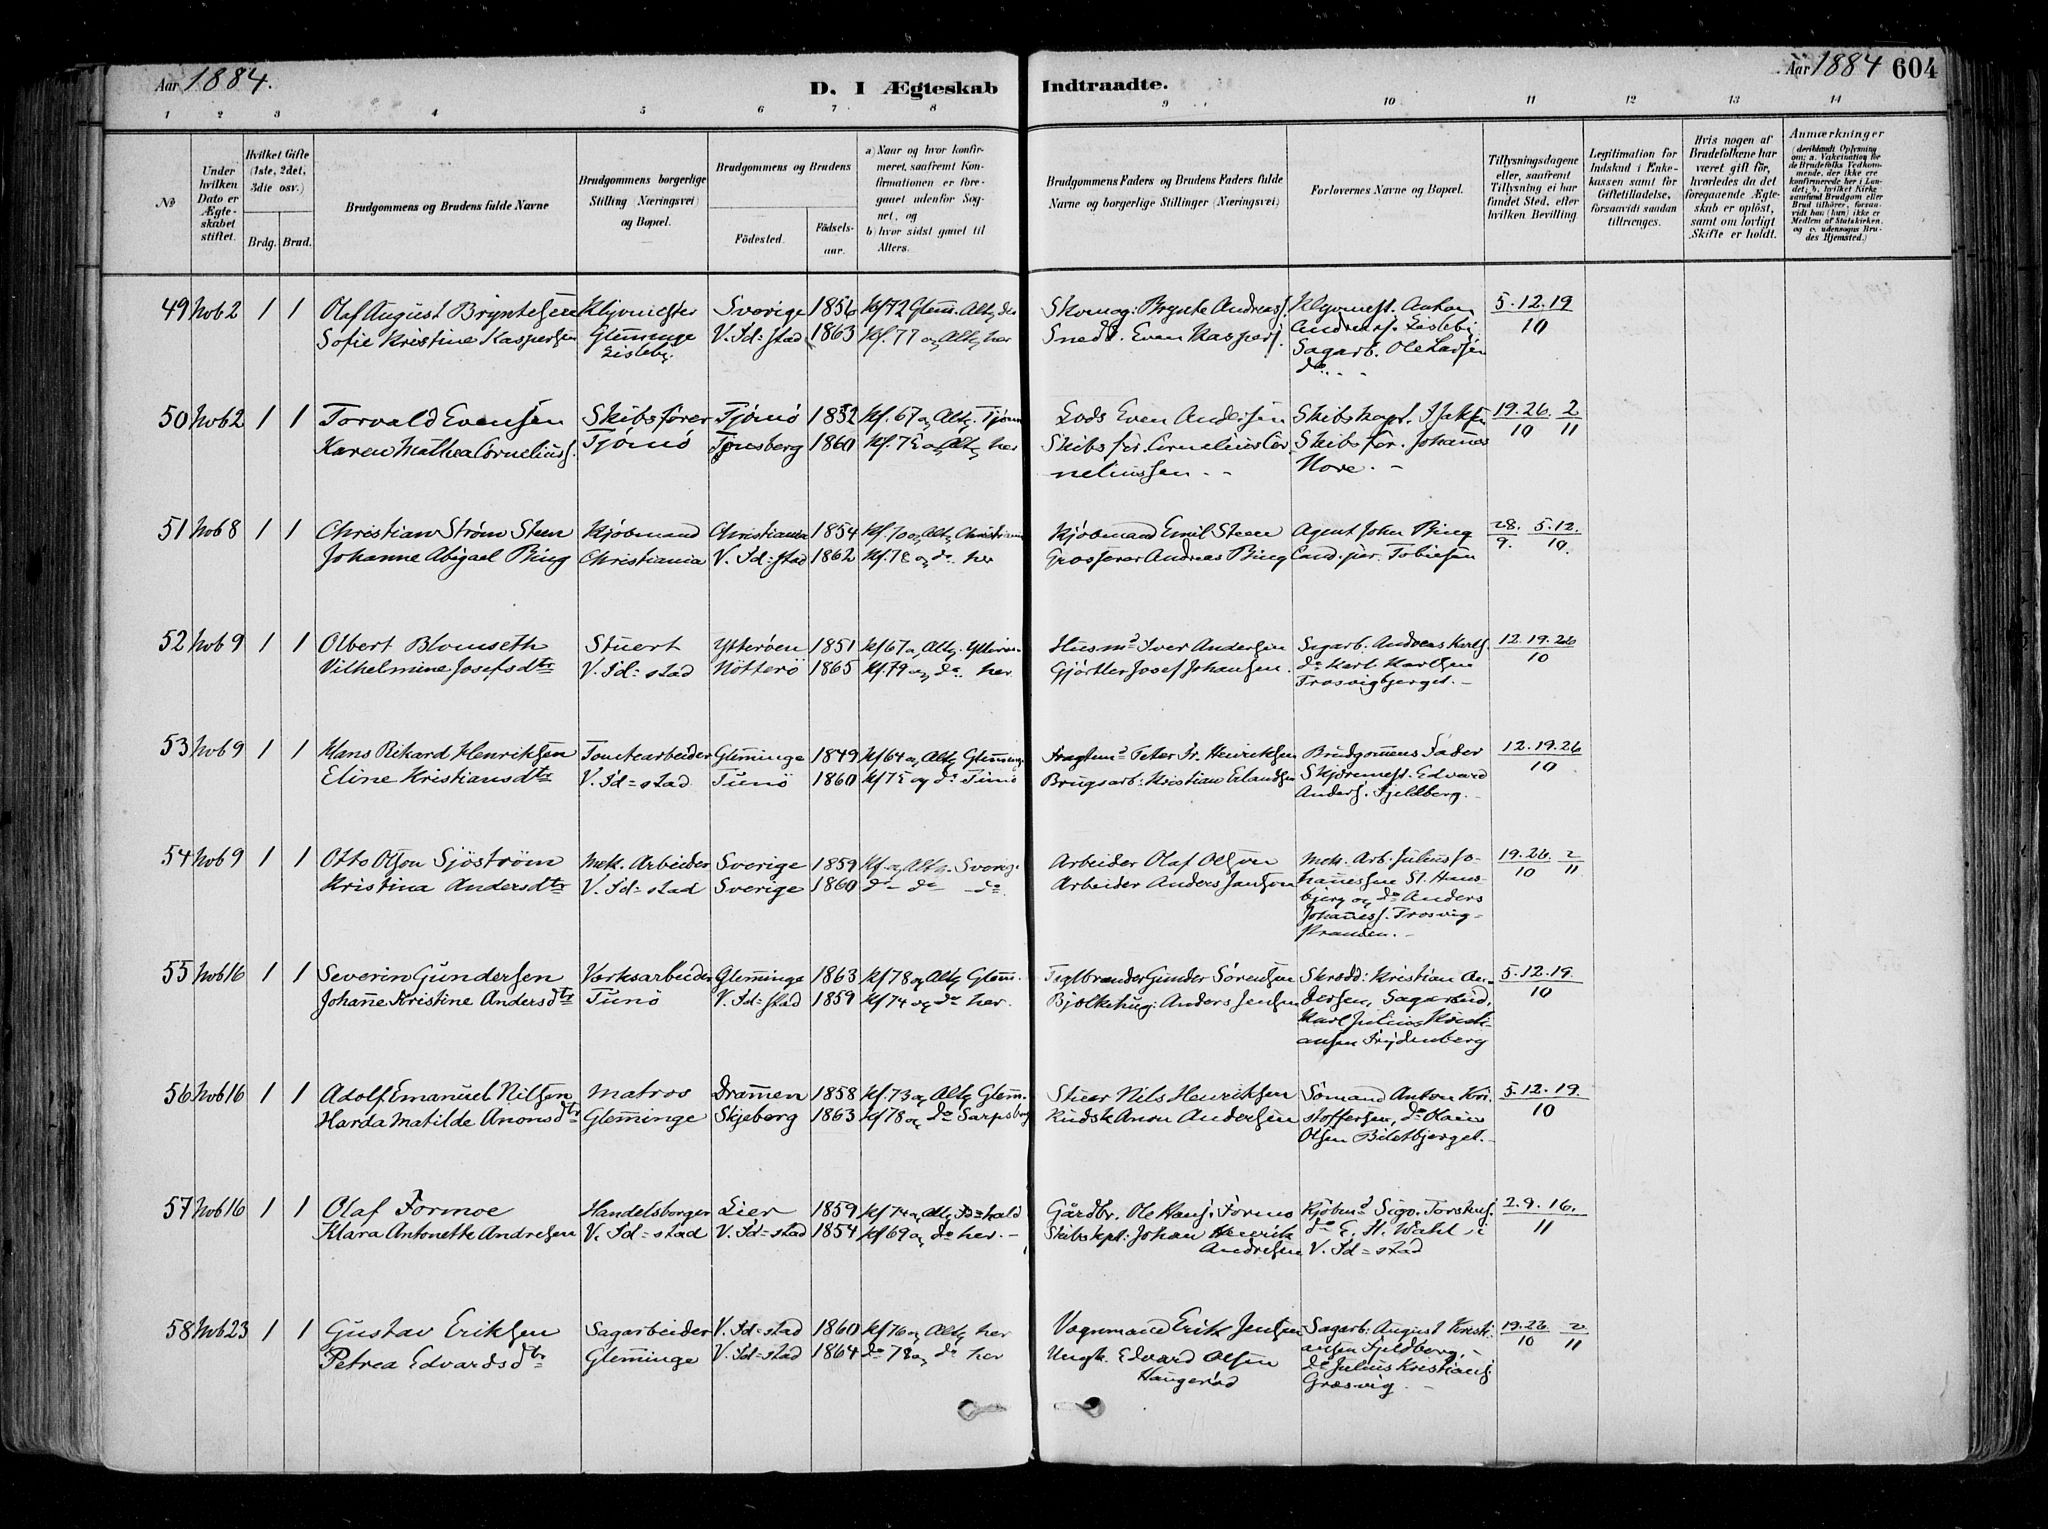 Aar 1884.
D. I Ægteskab Indtraadte.
Aar 1884 604
1 2 3 4 5 6 7 8 9 10 11 12 13 14
No
Under hvilken Dato er Ægteskabet stiftet.
Hvilket Gifte (1ste, 2det, 3die osv.)
Brdg. Brud.
Brudgommens og Brudens fulde Navne
Brudgommens borgerlige Stilling (Næringsvei) og Bopæl.
Brudgommens og Brudens
Födested. Födsels-aar.
a) Naar og hvor konfirmeret, saafremt Konfirmationen er foregaaet udenfor Sognet, og
b) hvor sidst gaaet til Alters.
Brudgommens Faders og Brudens Faders fulde Navne og borgerlige Stillinger (Næringsvei)
Forlovernes Navne og Bopæl.
Tillysningsdagene eller, saafremt Tillysning ei har fundet Sted, efter hvilken Bevilling.
Legitimation for Indskud i Enkekassen samt for Giftetilladelse, forsaavidt saadan tiltrænges.
Hvis nogen af Brudefolkene har været gift før, hvorledes da det foregaaende Ægteskab er oplöst, samt om lovligt Skifte er holdt.
Anmærkninger
(deriblandt Oplysning om: a. Vakcination for de Brudefolks Vedkommende, der ikke ere konfirmerede her i Landet; b. hvilket Kirkesamfund Brudgom eller Brud tilhörer, forsaavidt han (hun) ikke er Medlem af Statskirken, og c. udensogns Brudes Hjemsted.)
49 Nob 2 1 1 Olaf August Bryntesen Klyvmester Sverige 1856 kf 72 Glem. Altg do Skomag: Brynte Andreass. Klyvmest. Anton 5.12.19
Sofie Kristine Kaspersen Glemminge V. Fd=stad 1863 kf. 77 og Altg her Snedk. Even Kaspers. Andreass. Lisleby 10
Lisleby. Sagarb. Ole Larsen
do. - -
50 Nob 2 1 1 Torvald Evensen Skibsfører Tjømø 1852 kf. 67 og Altg. Tjømø Lods Even Andersen Skibskapt. Isaksen 19.26. 2
Karen Mathea Corneliuss. Tjømø Tønsberg 1860 kf. 75 og Altg her Skibsfør. Cornelius Cor Skibsfør. Johannes 10 11
neliussen - - Hove. -
51 Nob 8 1 1 Christian Strøm Steen Kjøbmand Christiania 1854 kf. 70 og Altg Christiania Kjøbmand Emil Steen Agent John Bing 28. 5.12.
Johanne Abigael Bing Christiania V. Fd=stad 1862 kf. 78 og do her Grosserer Andreas Bing Cand. jur. Tobiesen 9. 10.
52 Nob 9 1 1 Olbert Blomseth Stuert Ytterøen 1851 kf 67 og Altg. Ytterøen Husmd Iver Andersen Sagarb. Andreas Karls. 12.19.26
Vilhelmine Josefsdtr V. Fd=stad Nøtterø 1865 kf. 79 og do. her. Gjørtler Josef Johansen. do Karl Karlsen 10
Trosvigbjerget. -
53 Nob 9 1 1 Hans Rikard Henriksen Tomtearbeider Glemminge 1849 kf 64 og Altg Glemminge Fragtmd Peter Fr. Henriksen Brudgommens Fader 12.19.26
Eline Kristiansdtr V. Fd=stad Tunø 1860 kf 75 og do Tunø Brugsarb: Kristian Erlandsen Skjæremest. Edvard 10
Anders. Fjeldberg. -
54 Nob 9 1 1 Otto Olson Sjöström Mek. Arbeider Sverige 1859 kf og Altg. Sverige Arbeider Olaf Olsson Mek. Arb. Julius Jo- 19.26. 2
Kristina Andersdtr V. Fd=stad Sverige 1860 do do -do Arbeider Anders Janson hannessen St. Hans- 10 11
bjerg og do Anders
Johaness. Trosvig-
stranden. -
55 Nob 16 1 1 Severin Gundersen Værksarbeider Glemminge 1863 kf 78 og Altg Glem. Teglbrænder Gunder Sørensen Skrædd: Kristian An- 5.12.19.
Johanne Kristine Andersdtr Tunø V. Fd=stad 1859 kf 74 og do her. Bjelkehug: Anders Jensen dersen, Sagarbeid. 10
Karl Julius Kristi-
ansen Frydenberg
56 Nob 16 1 1 Adolf Emanuel Nilsen Matros Drammen 1858 kf. 73 og Altg Glem. Stuer Nils Henriksen Sømand Anton Kri 5.12.19.
Harda Matilde Aronsdtr Glemminge Skjeberg 1863 kf 78 og do Sarpsborg Kudsk Aron Andersen stoffersen, do Olaus 10
Olsen Biletbjerget. -
57 Nob 16 1 1 Olaf Formoe Handelsborger Lier 1859 kf 74 og Altg. Fd=hald Gårdbr. Ole Hans. Formo Kjøbmd Sigv. Torskes. 2.9.16.
Klara Antonette Andresen V. Fd=stad V. Fd=stad 1854 kf 69 og do her. - Skibskpt: Johan Henrik do E. H. Wahl i 11
Andresen V. Fd=stad
58 Nob 23 1 1 Gustav Eriksen Sagarbeider V. Fd=stad 1860 kf 76 og Altg her Vognmand Erik Jensen Sagarb: August Kristi. 19.26 2
Petrea Edvardsdtr Glemminge V. Fd=stad 1864 do 78 og do her Edvard Olsen ansen Fjeldberg. - 10 11
Haugerød do Julius Kristians.
Græsvig. -